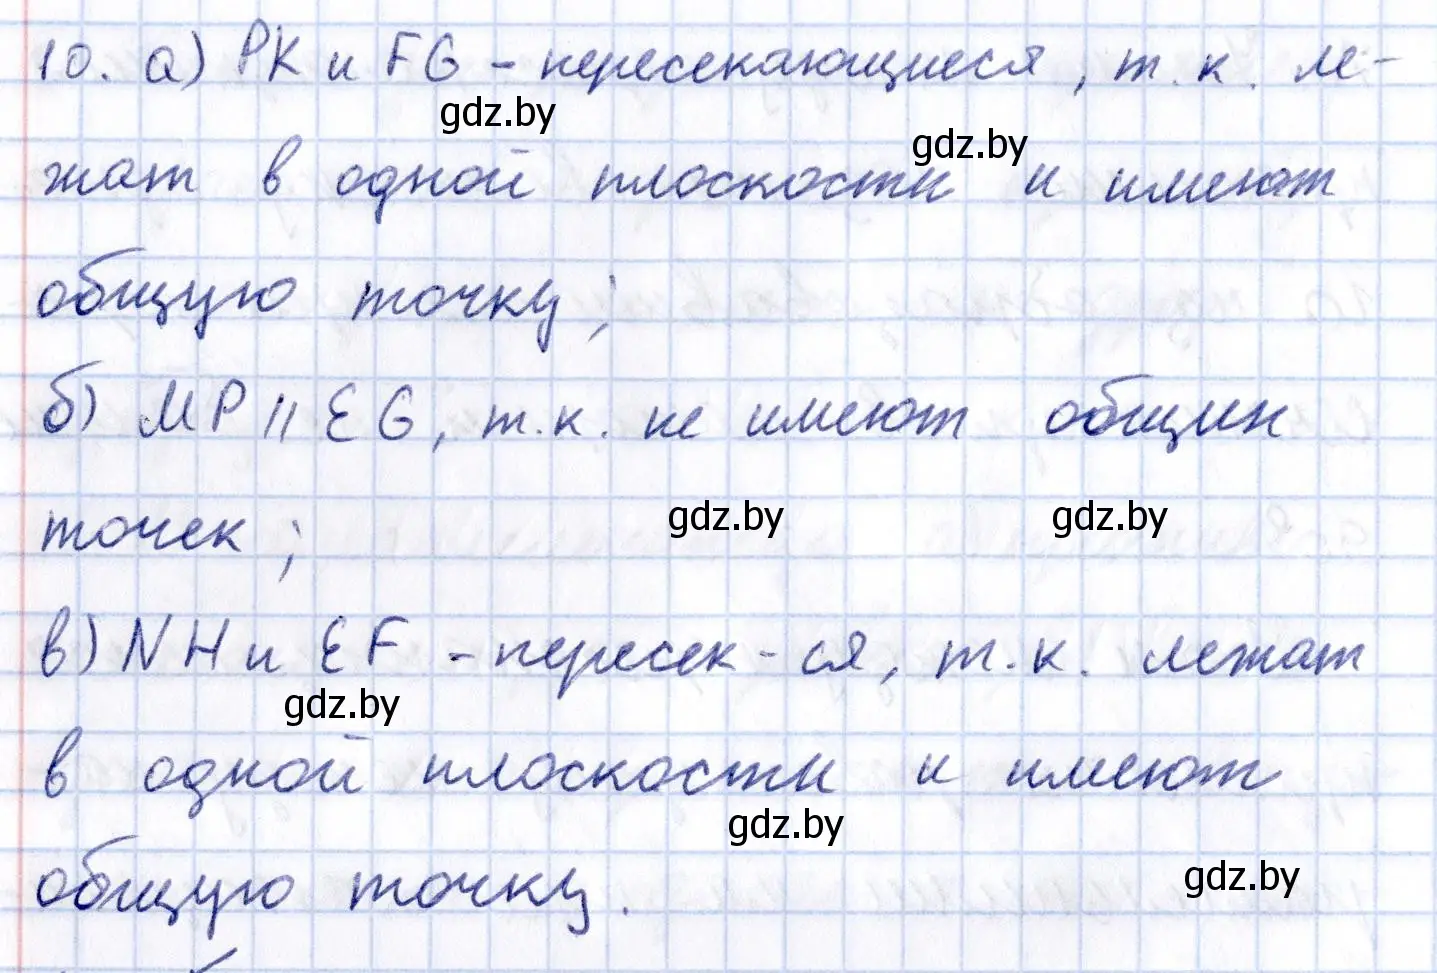 10. а) PK и FG - пересекающиеся, т.к. ле-
gdz.by
gdz.by
жат в одной плоскости и имеют
общую точку;
б) MP || EG, т.к. не имеют общих
точек;
gdz.by
gdz.by
в) NH и EF - пересек-ся, т.к. лежат
gdz.by
в одной плоскости и имеют
gdz.by
общую точку.
gdz.by